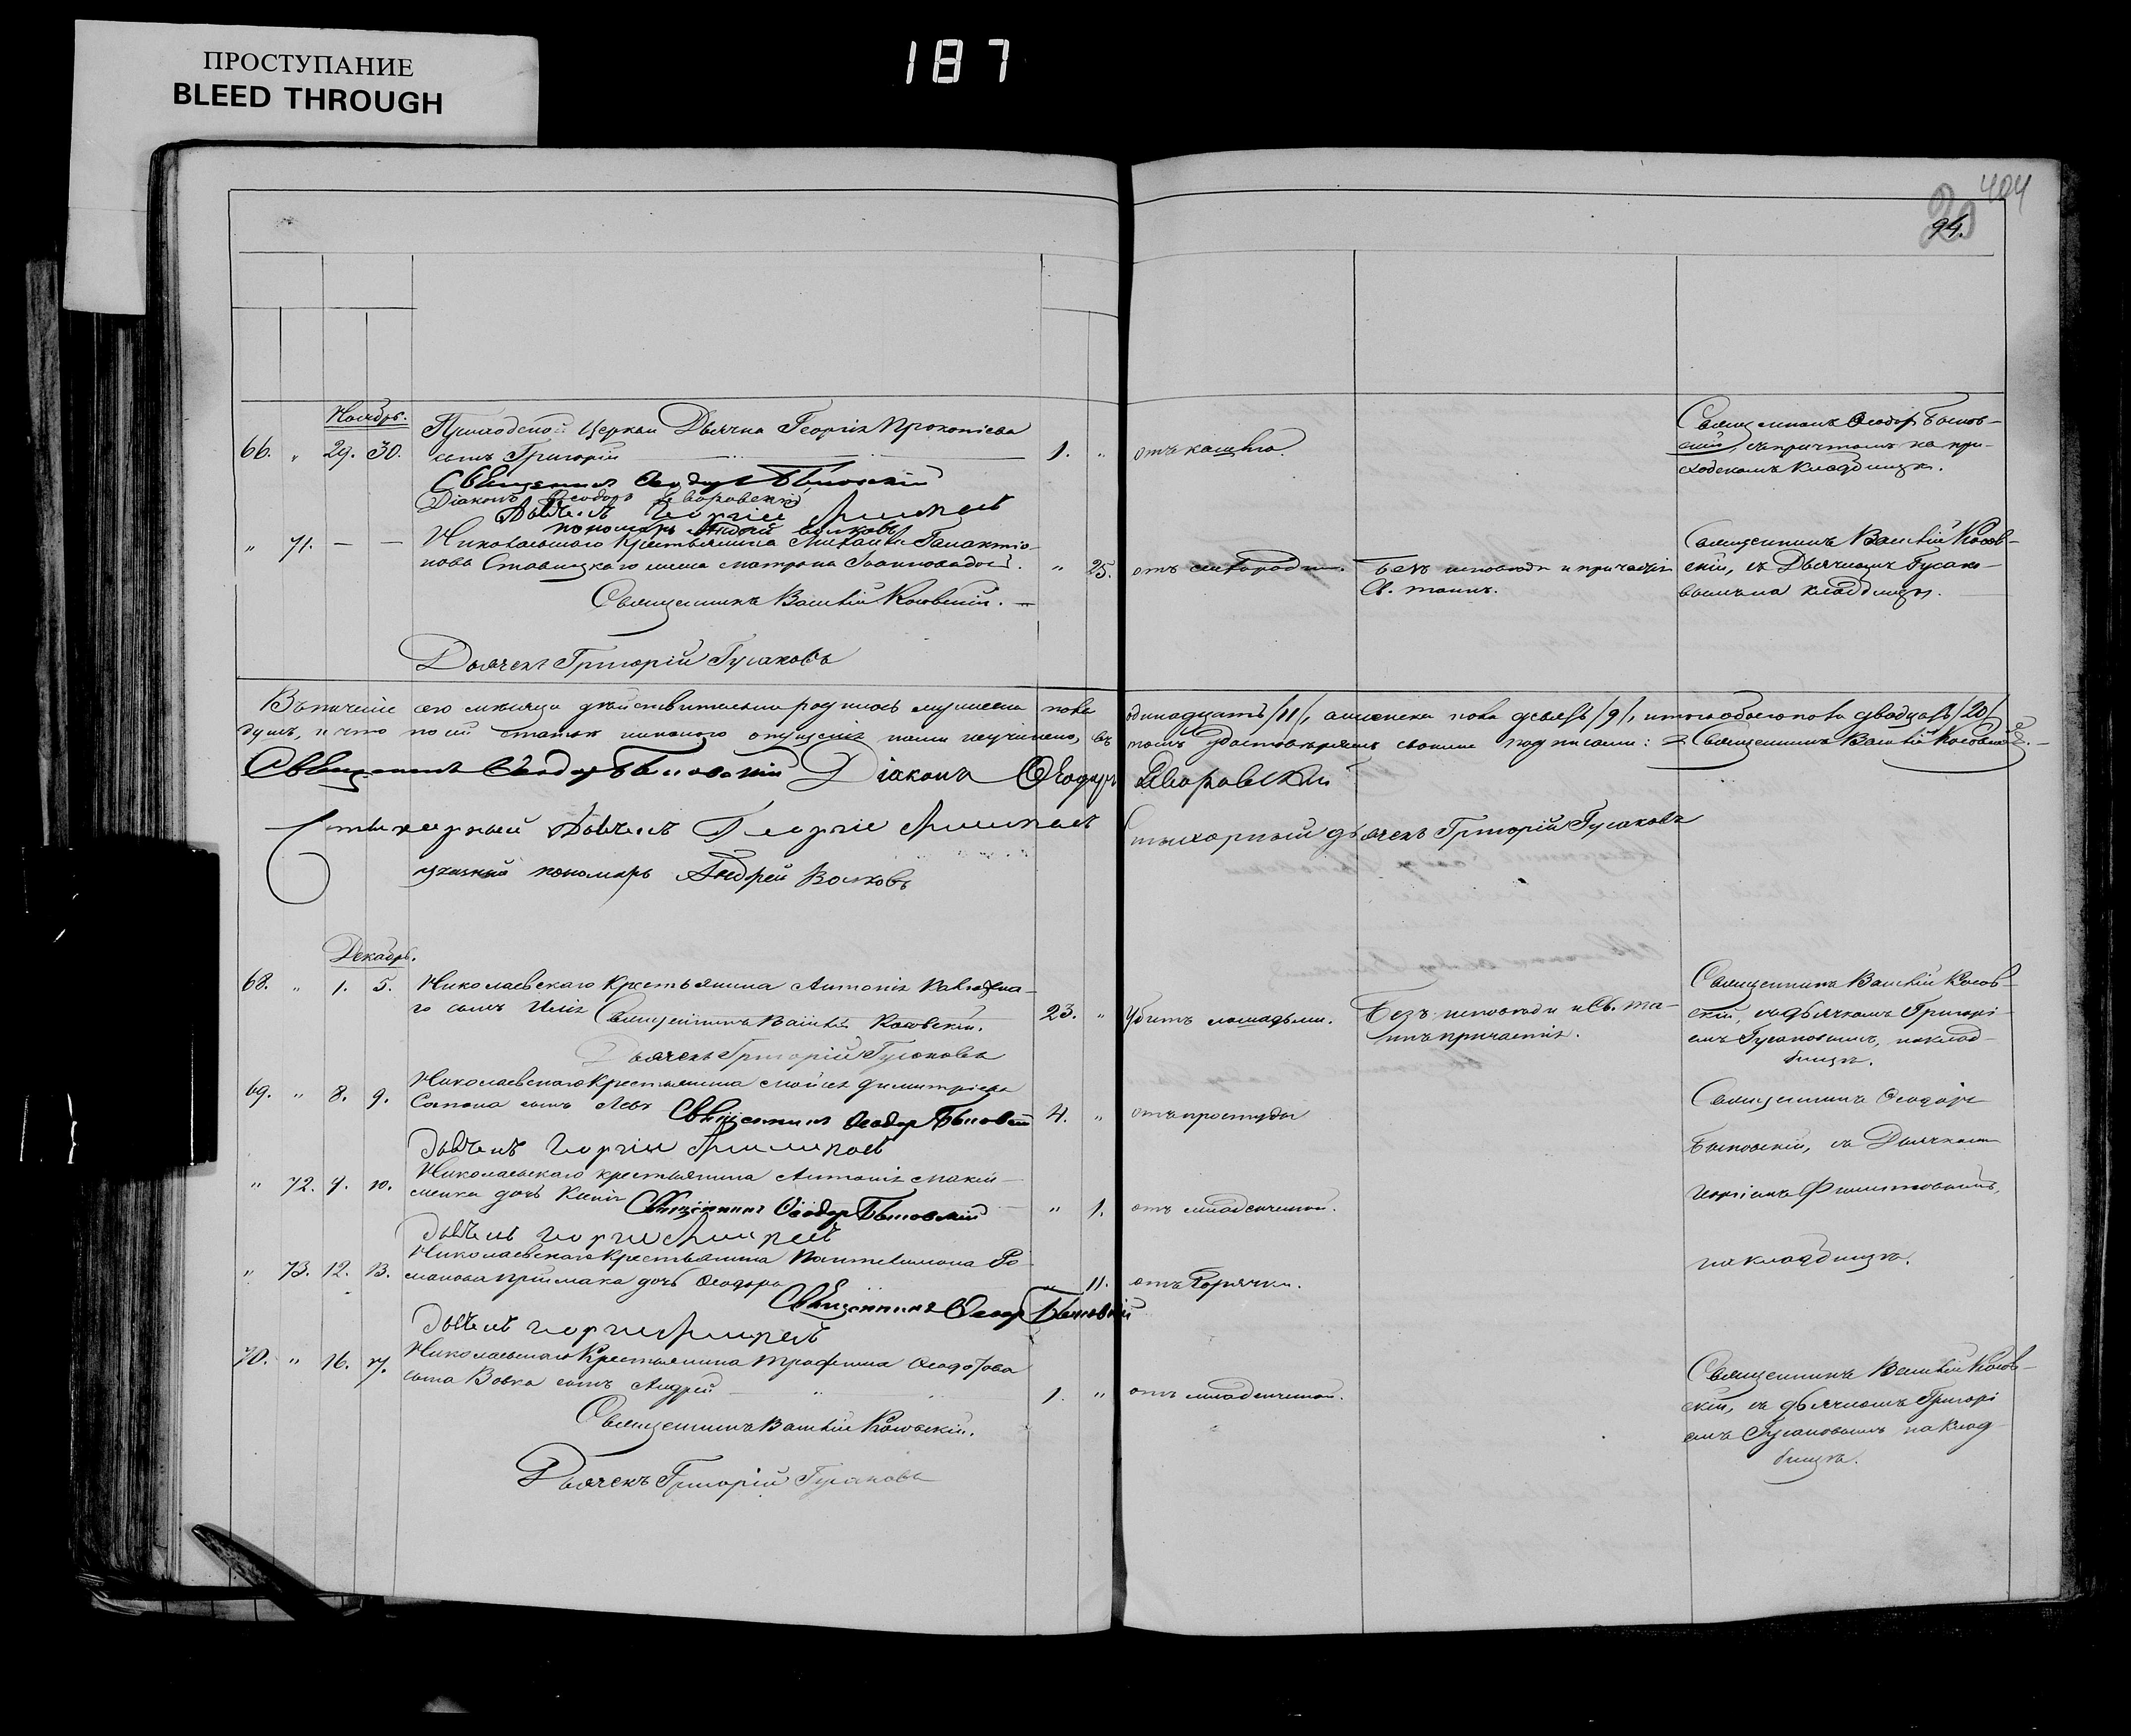 ПРОСТУПАНИЕ
BLEED THROUGH
187
404
94.
Ноябрь.
66. " 29. 30. Приходской Церкви Дьячка Георгія Прокопіева
сынъ Григорій 1. " отъ кашлю.
Священникъ Ѳеодоръ
скій, съ причтомъ на при-
ходскомъ кладбищѣ.
Священникъ Ѳеодоръ
Діаконъ Ѳеодоръ
Дьячекъ Георгій
пономарь Андрей Волковъ
" 71. — — Николаевскаго крестьянина Михаила Галактіо-
нова Ставицкаго жена Матрона " 25. отъ Безъ исповѣди и причастія
Св. таинъ.
Священникъ Василій Косов-
скій, съ Дьячкомъ Гусако-
вымъ на кладбищѣ.
Священникъ Василій Косовскій.
Дьячекъ Григорій Гусаковъ
Въ теченіе сего мѣсяца дѣйствительно родилось мужеска пола одинадцать /11/, а женска пола девять /9/, итого обоего пола двадцать /20/
душъ, и что по сей статьи никакого опущенія нами неучинено, въ томъ удостовѣряемъ своими подписами: Священникъ Василій Косовскій.
Священникъ Ѳеодоръ Діаконъ Ѳеодоръ
Стихарный Дьячекъ Георгій Стихарный дьячекъ Григорій Гусаковъ
пономарь Андрей Волковъ
Декабрь.
68. " 1. 5. Николаевскаго крестьянина Антонія
го сынъ Илія Священникъ Василій Косовскій. 23. " Убитъ лошадьми. Безъ исповѣди и Св. та-
инъ причастія.
Священникъ Василій Косов-
скій, съ дьячкомъ Григорі-
емъ Гусаковымъ, на клад-
бищѣ.
Дьячекъ Григорій Гусаковъ
69. " 8. 9. Николаевскаго крестьянина Мойсея Димитріева
сынъ Левъ Священникъ Ѳеодоръ 4. " отъ простуды
Священникъ Ѳеодоръ
съ Дьячкомъ
Георгіемъ Филиповымъ,
на кладбищѣ.
Дьячекъ Георгій
" 72. 9. 10. Николаевскаго крестьянина Антонія Макси-
менка дочь Ксенія Священникъ Ѳеодоръ " 1. отъ младенческой.
Дьячекъ Георгій
" 73. 12. 13. Николаевскаго крестьянина Пантелимона Ро-
манова Приймака дочь Ѳеодора " 11. отъ Горячки.
Священникъ Ѳеодоръ
Дьячекъ Георгій
70. " 16. 17. Николаевскаго Крестьянина Трофима Ѳеодотова
сына Вовка сынъ Андрей 1. " отъ младенческой.
Священникъ Василій Косов-
скій, съ дьячкомъ Григорі
емъ Гусаковымъ на клад-
бищѣ.
Священникъ Василій Косовскій.
Дьячекъ Григорій Гусаковъ